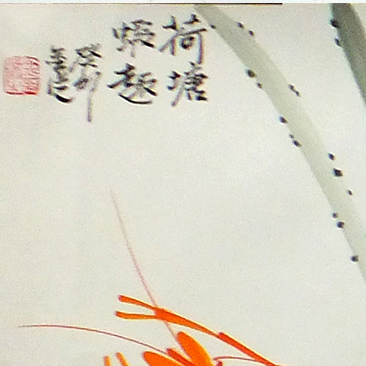 荷塘
蝦趣
癸卯